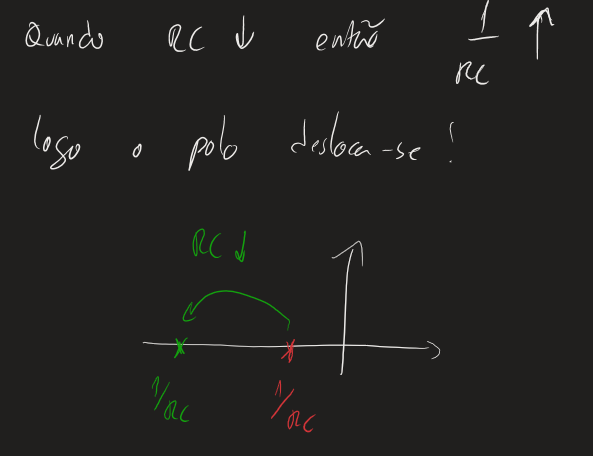 Quando RC ↓ então 1/RC ↑
logo o polo desloca-se!
RC ↓
1/RC 1/RC